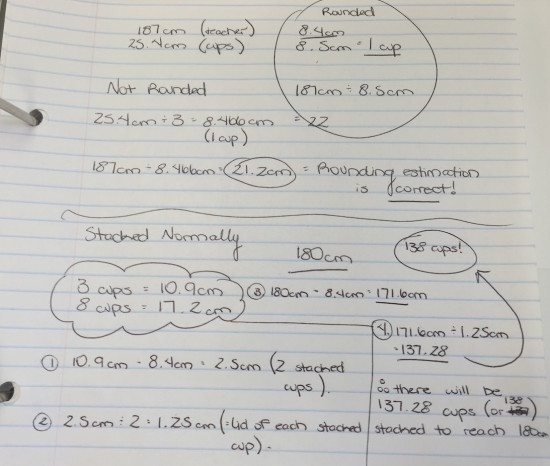 Rounded
187cm (teacher)
25.4cm (cups)
8.4cm
8.5cm = 1 cup
Not Rounded
187cm ÷ 8.5cm
= 22
25.4cm ÷ 3 = 8.466cm
(1 cup)
187cm ÷ 8.466cm = 21.2cm = Rounding estimation
is correct!
Stacked Normally
180cm
138 cups!
3 cups = 10.9cm
8 cups = 17.2cm
③ 180cm - 8.4cm = 171.6cm
④ 171.6cm ÷ 1.25cm
= 137.28
① 10.9cm - 8.4cm = 2.5cm (2 stacked
cups).
∴ there will be
137.28 cups (or 138)
② 2.5cm ÷ 2 = 1.25cm (=lid of each stacked
cup).
stacked to reach 180cm